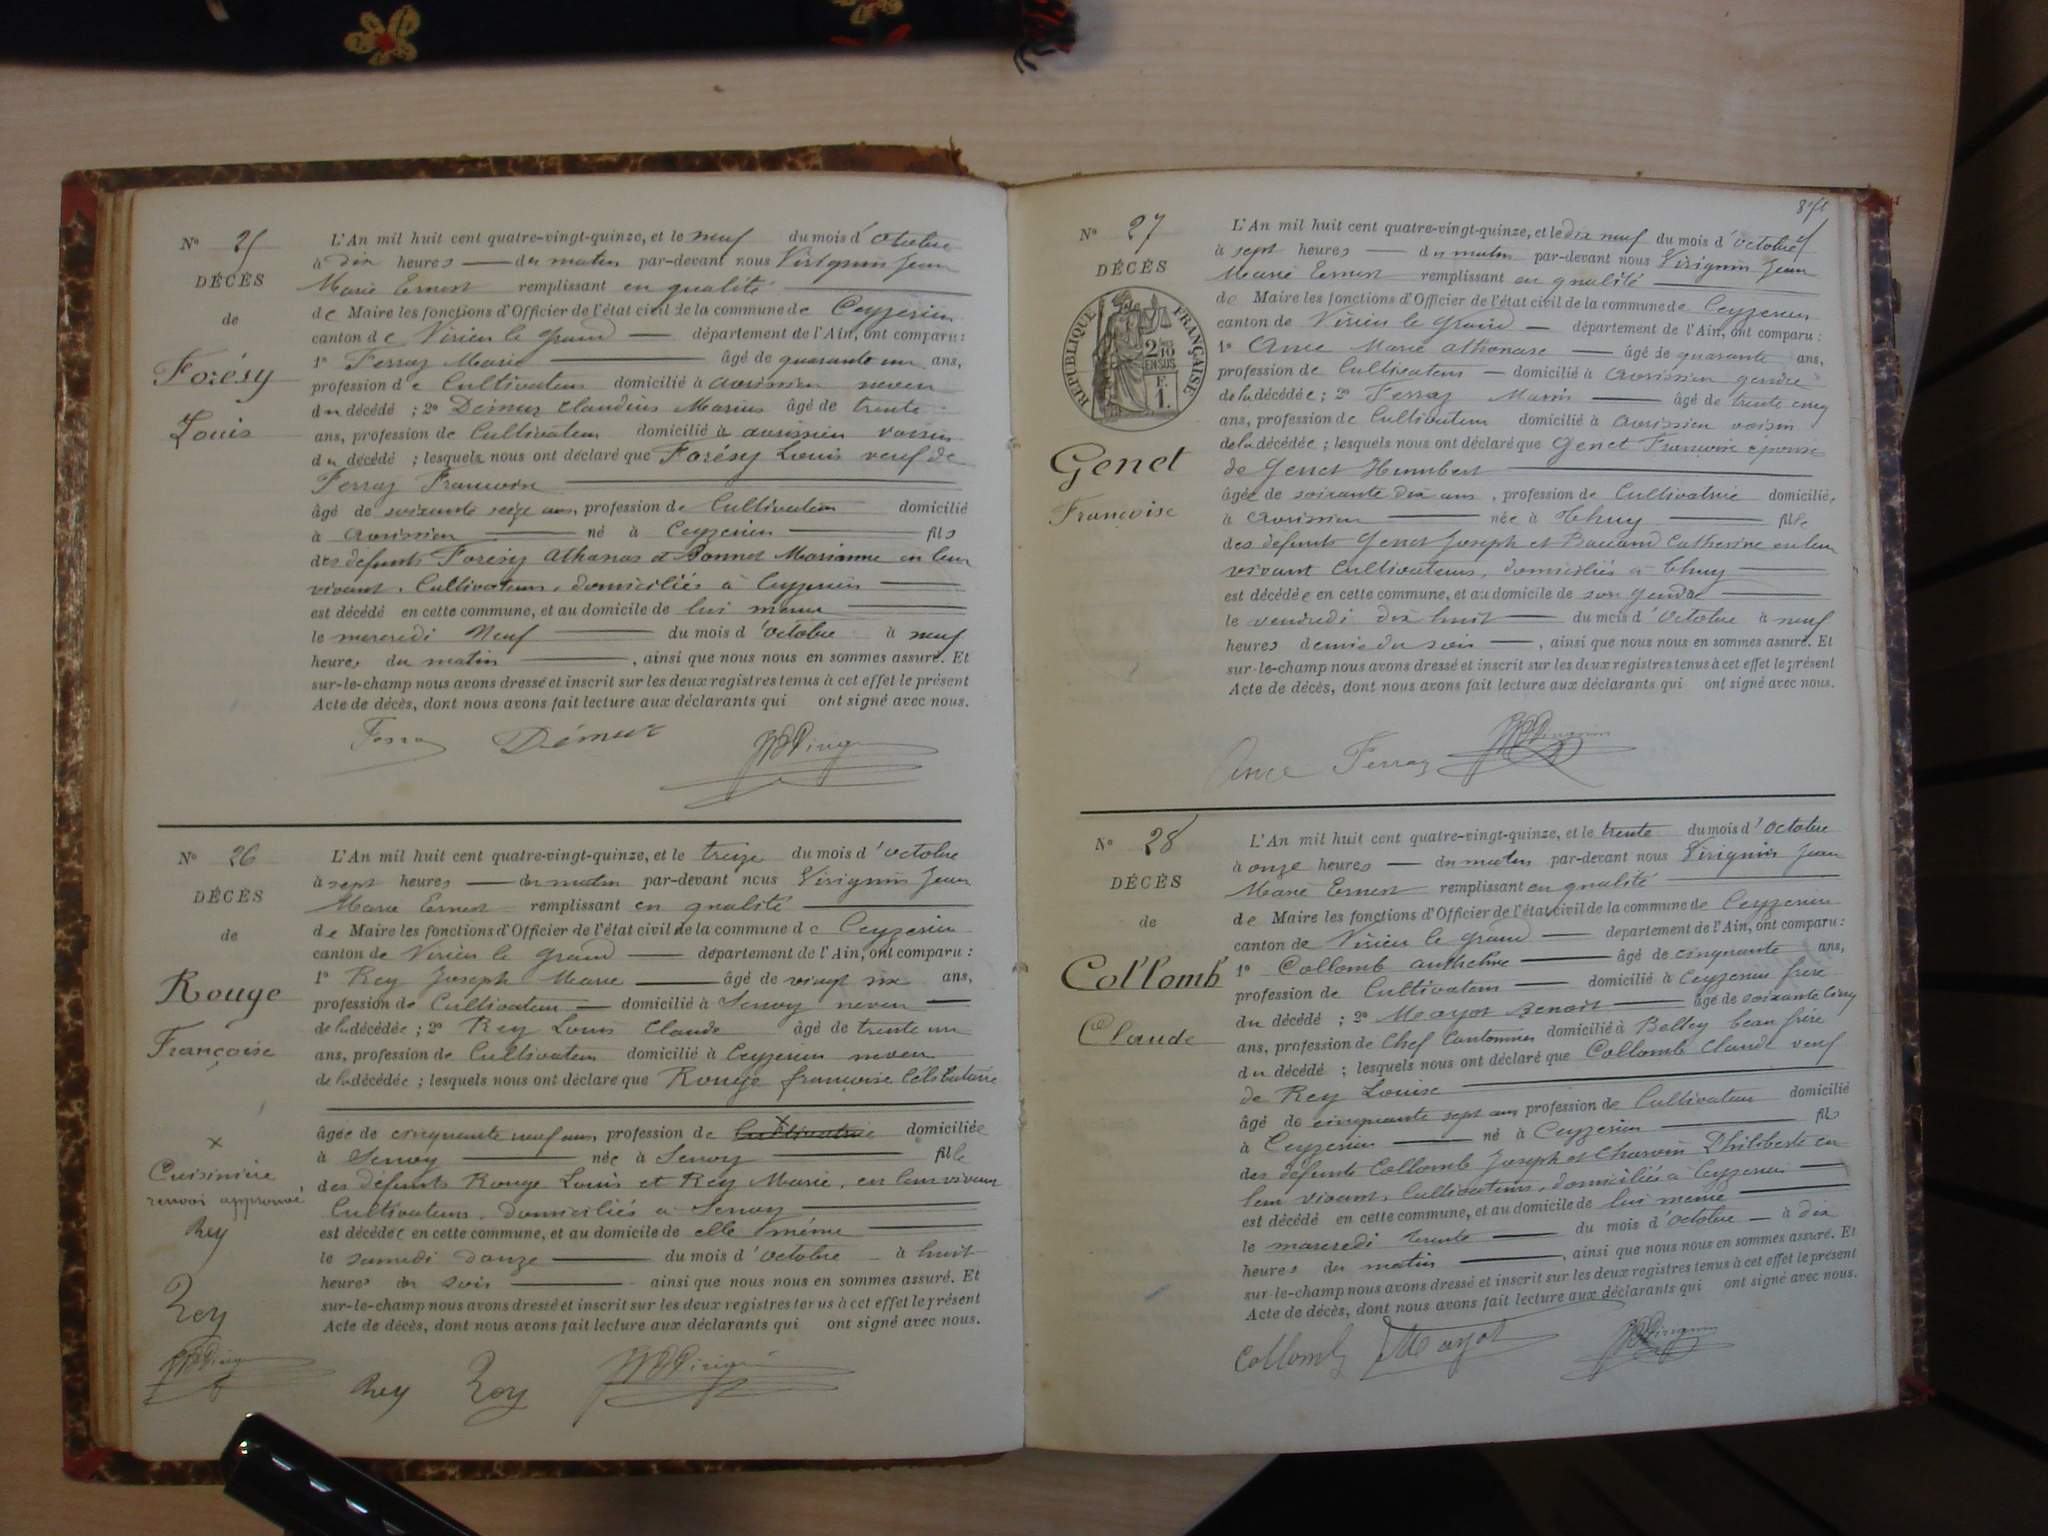 N° 25
DÉCÈS
de
Forésy
Louis
L'An mil huit cent quatre-vingt-quinze, et le neuf du mois d'octobre
à dix heures — du matin par-devant nous Virignin Jean
Marie Ernest remplissant en qualité
de Maire les fonctions d'Officier de l'état civil de la commune de Ceyzerieu
canton de Virieu le Grand — département de l'Ain, ont comparu :
1° Ferraz Marie — âgé de quarante un ans,
profession de Cultivateur domicilié à avrissieu neveu
du décédé ; 2° Démur Claudius Marius âgé de trente
ans, profession de Cultivateur domicilié à avrissieu voisin
du décédé ; lesquels nous ont déclaré que Forésy Louis veuf de
Ferraz Françoise
âgé de soixante seize ans, profession de Cultivateur domicilié
à avrissieu — né à Ceyzerieu — fils
des défunts Forésy Athanas et Bonnet Marianne en leur
vivant, Cultivateurs, domiciliés à Ceyzerieu
est décédé en cette commune, et au domicile de lui même
le mercredi Neuf — du mois d'octobre à neuf
heures du matin —, ainsi que nous nous en sommes assuré. Et
sur-le-champ nous avons dressé et inscrit sur les deux registres tenus à cet effet le présent
Acte de décès, dont nous avons fait lecture aux déclarants qui ont signé avec nous.
Ferraz Démur
N° 26
DÉCÈS
de
Rouge
Françoise
×
Cuisinière
renvoi approuvé
Rey
Rey
L'An mil huit cent quatre-vingt-quinze, et le treize du mois d'octobre
à sept heures — du matin par-devant nous Virignin Jean
Marie Ernest remplissant en qualité
de Maire les fonctions d'Officier de l'état civil de la commune de Ceyzerieu
canton de Virieu le Grand — département de l'Ain, ont comparu :
1° Rey Joseph Marie — âgé de vingt six ans,
profession de Cultivateur — domicilié à Senoy neveu —
de la décédée ; 2° Rey Louis Claude âgé de trente un
ans, profession de Cultivateur domicilié à Ceyzerieu neveu
de la décédée ; lesquels nous ont déclaré que Rouge françoise Célibataire
âgée de cinquante neuf ans, profession de Cultivatrice domiciliée
à Senoy — née à Senoy — fille
des défunts Rouge Louis et Rey Marie, en leur vivant
Cultivateurs, domiciliés à Senoy
est décédée en cette commune, et au domicile de elle même
le samedi douze — du mois d'octobre — à huit
heures du soir — ainsi que nous nous en sommes assuré. Et
sur-le-champ nous avons dressé et inscrit sur les deux registres tenus à cet effet le présent
Acte de décès, dont nous avons fait lecture aux déclarants qui ont signé avec nous.
Rey Rey
N° 27
DÉCÈS
de
RÉPUBLIQUE FRANÇAISE
2/10 EN SUS
F. 1.
Genet
Françoise
L'An mil huit cent quatre-vingt-quinze, et le dix neuf du mois d'octobre
à sept heures — du matin par-devant nous Virignin Jean
Marie Ernest remplissant en qualité
de Maire les fonctions d'Officier de l'état civil de la commune de Ceyzerieu
canton de Virieu le Grand — département de l'Ain, ont comparu :
1° Ance Marie athanase — âgé de quarante ans,
profession de Cultivateur — domicilié à avrissieu gendre
de la décédée ; 2° Ferraz Marin — âgé de trente cinq
ans, profession de Cultivateur domicilié à avrissieu voisin
de la décédée ; lesquels nous ont déclaré que Genet Françoise épouse
de Genet Humbert
âgée de soixante dix ans, profession de Cultivatrice domiciliée
à avrissieu — née à Chuy — fille
des défunts Genet Joseph et Catherine en leur
vivant Cultivateurs, domiciliés à Chuy
est décédée en cette commune, et au domicile de son gendre
le vendredi dix huit — du mois d'octobre à neuf
heures demie du soir —, ainsi que nous nous en sommes assuré. Et
sur-le-champ nous avons dressé et inscrit sur les deux registres tenus à cet effet le présent
Acte de décès, dont nous avons fait lecture aux déclarants qui ont signé avec nous.
Ance Ferraz Virignin
N° 28
DÉCÈS
de
Collomb
Claude
L'An mil huit cent quatre-vingt-quinze, et le trente du mois d'octobre
à onze heures — du matin par-devant nous Virignin Jean
Marie Ernest remplissant en qualité
de Maire les fonctions d'Officier de l'état civil de la commune de Ceyzerieu
canton de Virieu le Grand — département de l'Ain, ont comparu :
1° Collomb anthelme — âgé de cinquante ans,
profession de Cultivateur — domicilié à Ceyzerieu frère
du décédé ; 2° Mayot Benoit — âgé de soixante cinq
ans, profession de Chef Cantonnier domicilié à Belley beau frère
du décédé ; lesquels nous ont déclaré que Collomb Claude veuf
de Rey Louise
âgé de cinquante sept ans profession de Cultivateur domicilié
à Ceyzerieu — né à Ceyzerieu — fils
des défunts Collomb Joseph et Charvin Philiberte en
leur vivant, Cultivateurs, domiciliés à Ceyzerieu —
est décédé en cette commune, et au domicile de lui même
le mercredi trente — du mois d'octobre — à dix
heures du matin —, ainsi que nous nous en sommes assuré. Et
sur-le-champ nous avons dressé et inscrit sur les deux registres tenus à cet effet le présent
Acte de décès, dont nous avons fait lecture aux déclarants qui ont signé avec nous.
Collomb Mayot Virignin